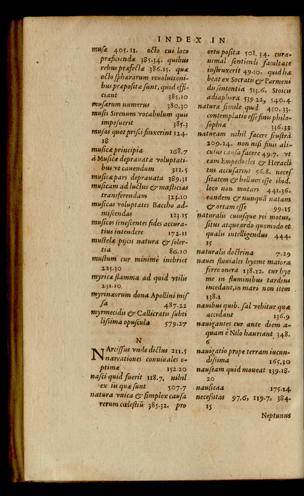 INDEX IN
musæ 405.11. octo cui loco
præficienda 385.14. quibus
rebus præfectæ 386.15. quæ
octo sphærarum reuolutioni-
bus præpositæ sunt, quid effi-
ciant 385.10
musarum numerus 380.30
musis Sirenum vocabulum quis
imposuerit 385.3
musas quot prisci fixerint 124-
18
musica principia 208.7
à Musicæ deprauatæ voluptati-
bus vt cauendum 311.5
musica pari deprauata 389.15
musicam ad luctus & mœsticias
transferendam 124.10
musicas voluptates Baccho ad-
miscendas 123.15
musicos senescentes fides accura-
tius intendere 172.11
mustelæ piscis natura & soler-
tia 80.10
mustum cur minimè inebriet
225.30
myrica flamma ad quid vtilis
231.10
myrinæorum dona Apollini mis
sa 487.22
myrmecidis & Callicrati subti
lissima opuscula 579.27
N
NArcissus vnde dictus 211.5
narrationes conuiuales ve-
ptimæ 152.20
nasci quid fuerit 118.7. nihil
ex in quæ sunt 507.7
natura vnica & simplex causa
rerum cælestiũ 385.32. pro
ortu posita 508.34. cura-
nimal sentiendi facultate
instruxerit 49.10. quid ha
beat ex Socratis & Parmeni
dis sententia 513.6. Stoicis
adiaphora 519.22, 540.4
natura simile quid 410.33.
contemplatio esse finis philo-
sophiæ 316.33
naturam nihil facere frustrà
209.24. non nisi finis ali-
cuius causa facere 49.7. vt
eam Empedocles & Heracli
tus accusarint 56.8. neces-
sitatem & bellum esse illud.
loco non mutari 441.36.
eandem & nunquã natam
& ortam esse 99.15
naturalis cuiusque rei motus,
situs atque ordo quomodo et
qualis intelligendus 444-
15
naturalis doctrina 7.29
naues fluuiales hyeme maiora
ferre onera 138.12. cur hye
me in fluminibus tardius
incedant, in mari non item
138.2
nauibus quib. sal vehitur quæ
accidant 136.9
nauigantes cur ante diem a-
quam è Nilo hauriant 348.
6
nauigatio prope terram iucun-
dissima 165.30
nauseam quid moueat 139.18-
20
nausicaa 175.14
necessitas 97.6, 119.7, 384-
15
Neptunus